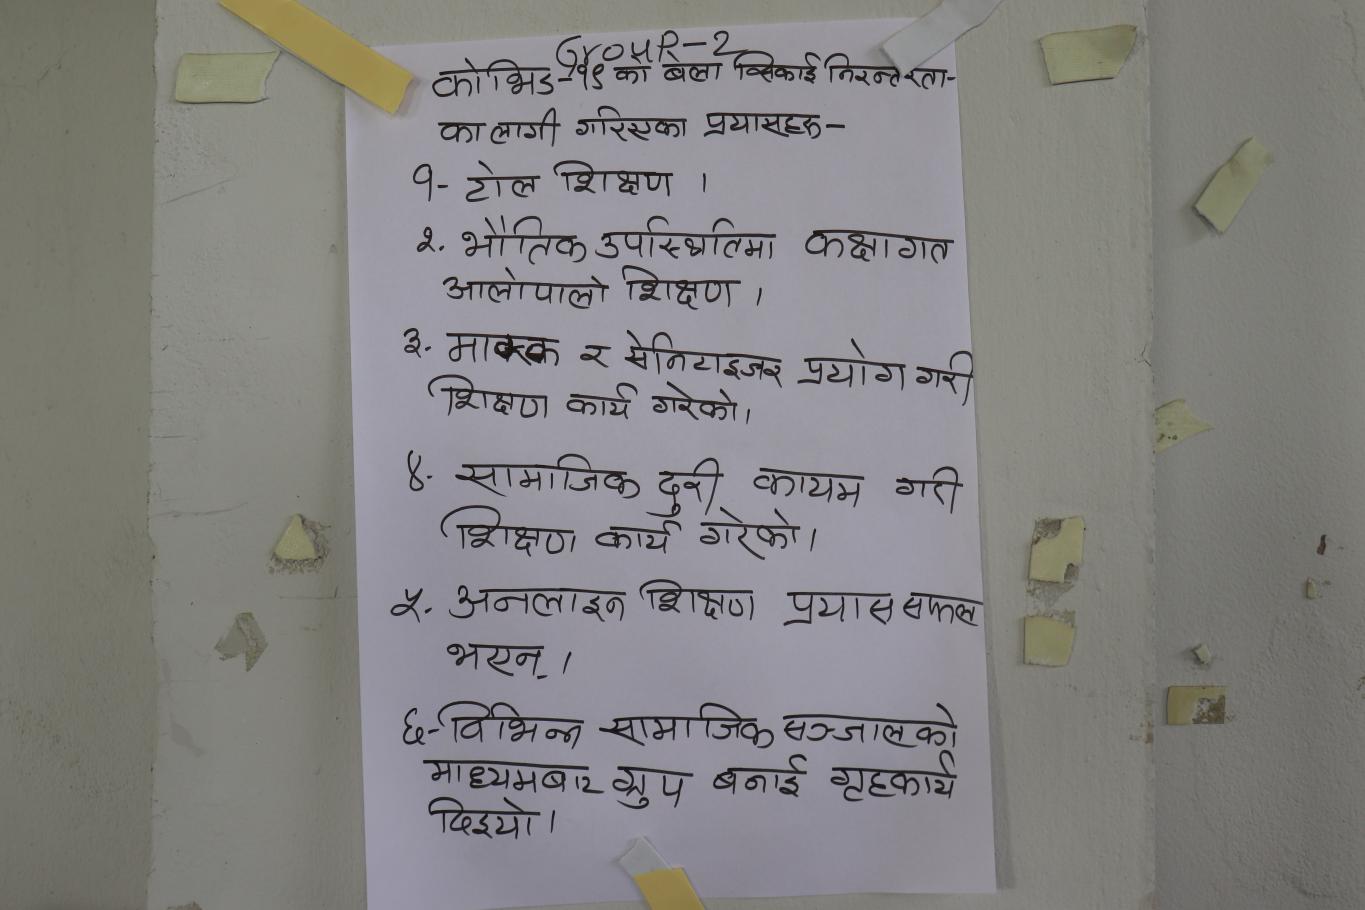 Group-2
कोभिड-१९ का बेला सिकाई निरन्तरता-
का लागी गरिएका प्रयासहरू-
१- टोल शिक्षण ।
२. भौतिक उपस्थितिमा कक्षागत
आलोपालो शिक्षण ।
३. मास्क र सेनिटाइजर प्रयोग गरी
शिक्षण कार्य गरेको।
४. सामाजिक दुरी कायम गरी
शिक्षण कार्य गरेको।
५. अनलाइन शिक्षण प्रयास सफल
भएन् ।
६- विभिन्न सामाजिक सञ्जालको
माध्यमबाट ग्रुप बनाई गृहकार्य
दिइयो।